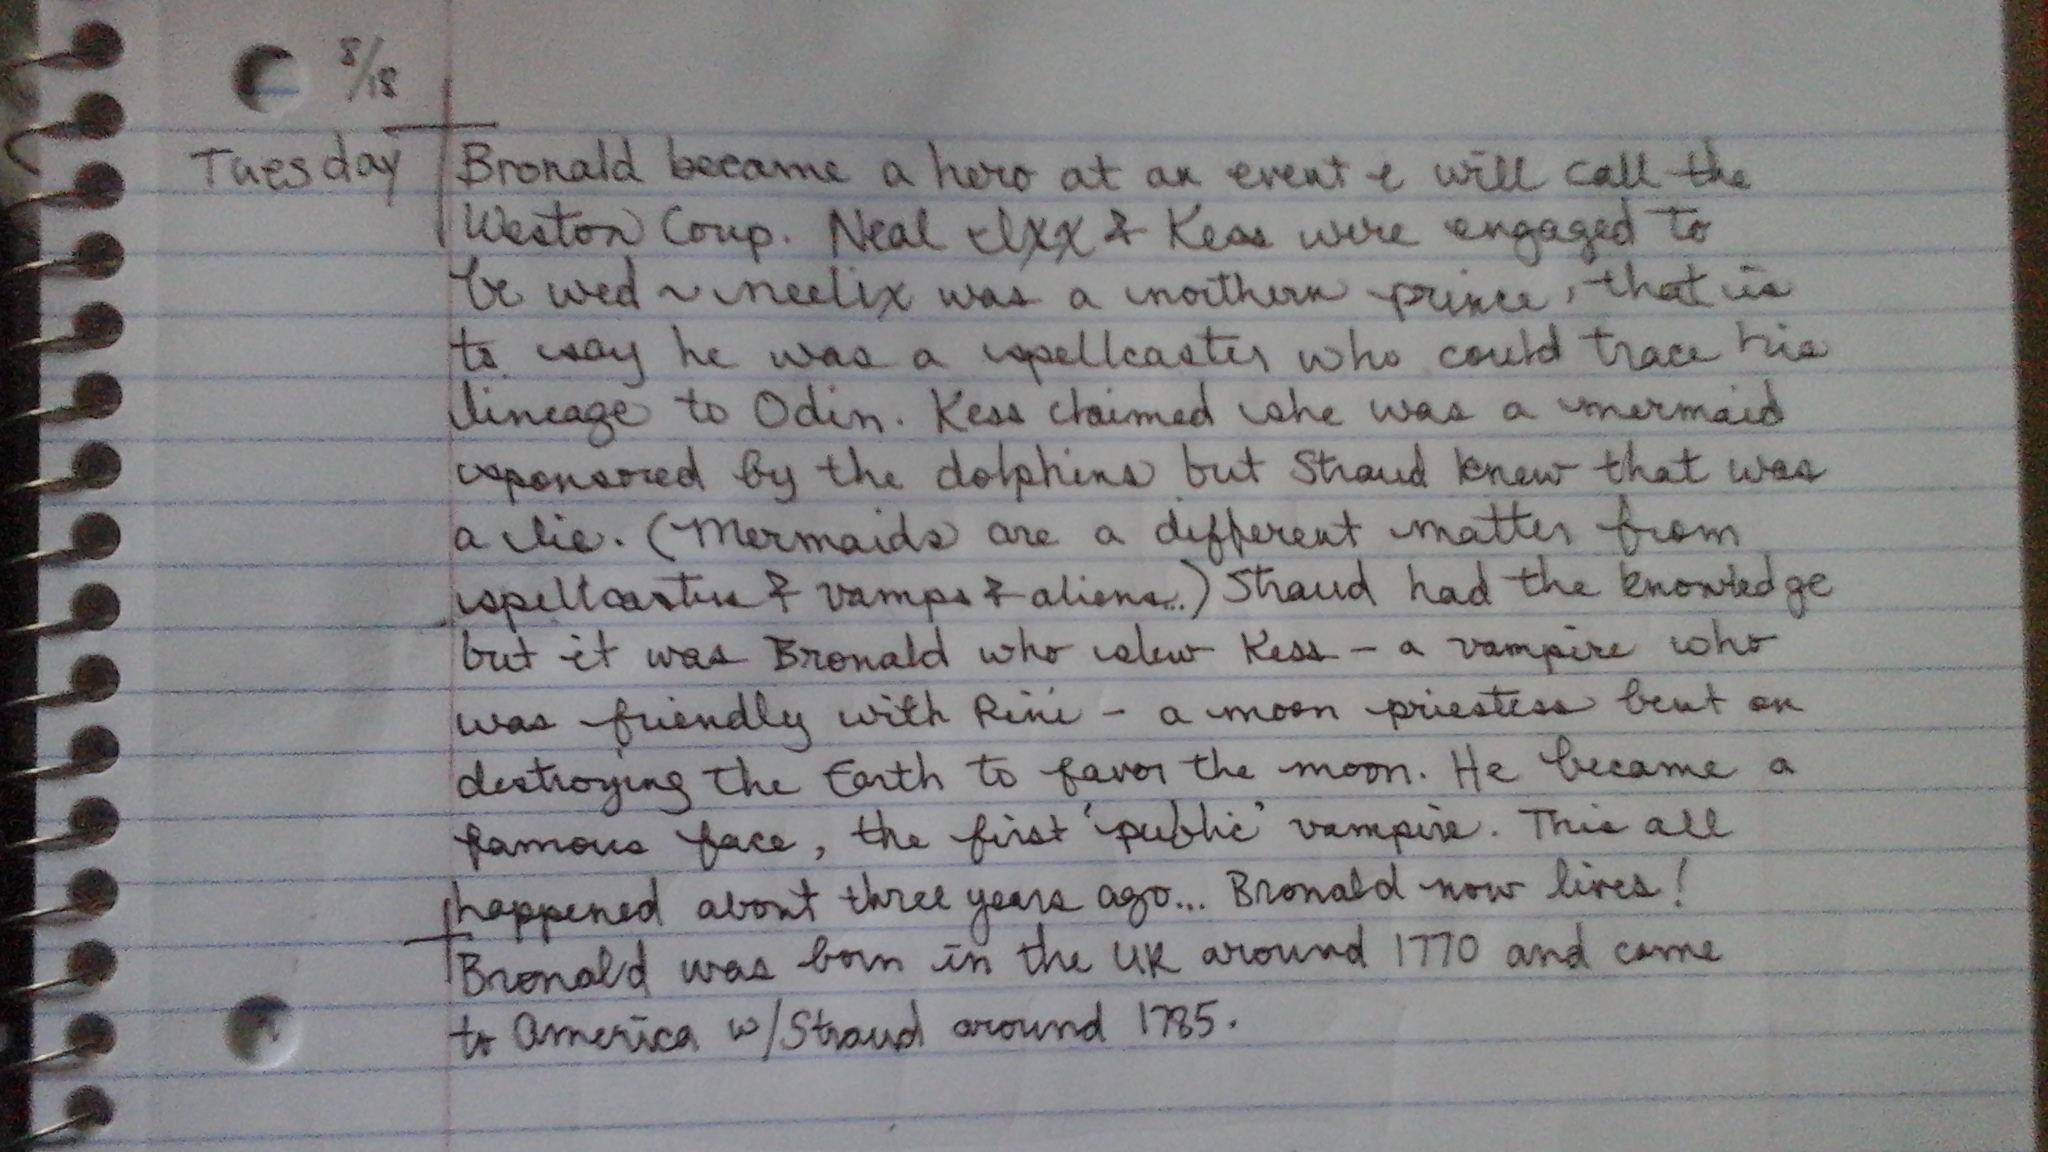 8/18
Tuesday Bronald became a hero at an event I will call the
Weston Coup. Neal Ixx & Kess were engaged to
be wed ~ Neelix was a northern prince, that is
to say he was a spellcaster who could trace his
lineage to Odin. Kess claimed she was a mermaid
sponsored by the dolphins but Straud knew that was
a lie. (Mermaids are a different matter from
spellcasters & vamps & aliens...) Straud had the knowledge
but it was Bronald who slew Kess - a vampire who
was friendly with Rini - a moon priestess bent on
destroying the Earth to favor the moon. He became a
famous face, the first 'public' vampire. This all
happened about three years ago... Bronald now lives!
Bronald was born in the UK around 1770 and came
to America w/Straud around 1785.